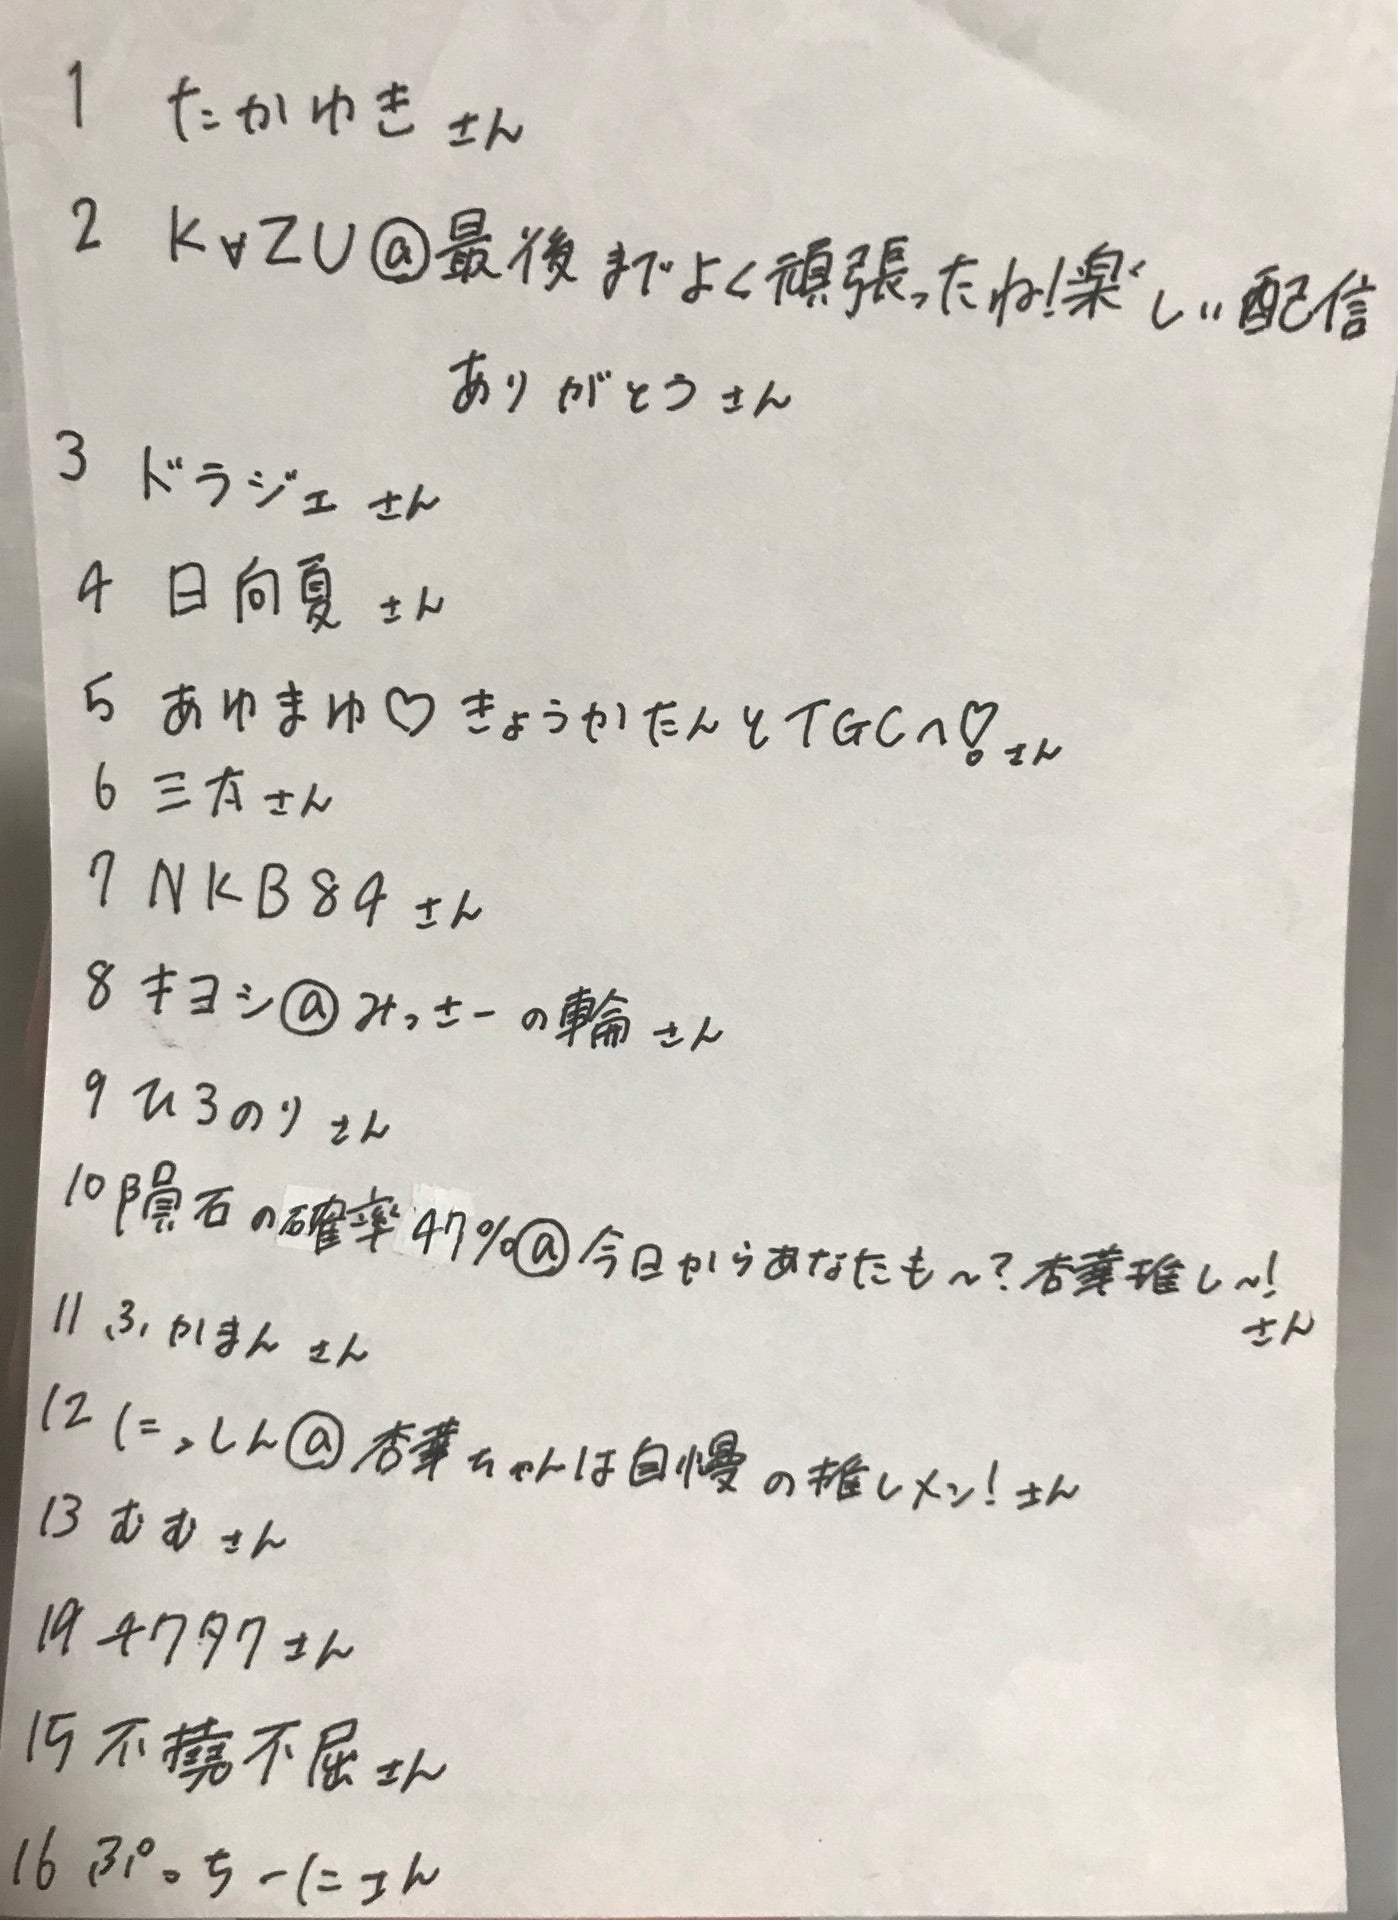 1 たかゆきさん
2 K∀ZU@最後までよく頑張ったね!楽しい配信
ありがとうさん
3 ドラジェさん
4 日向夏さん
5 あゆまゆ♡きょうかたんとTGCへ♡さん
6 三太さん
7 NKB84さん
8 キヨシ@みっさーの輪さん
9 ひろのりさん
10 隕石の確率47%@今日からあなたも~?杏華推し~!
さん
11 ふかまんさん
12 にっしん@杏華ちゃんは自慢の推しメン!さん
13 むむさん
14 チワタワさん
15 不撓不屈さん
16 ぷっちーにさん